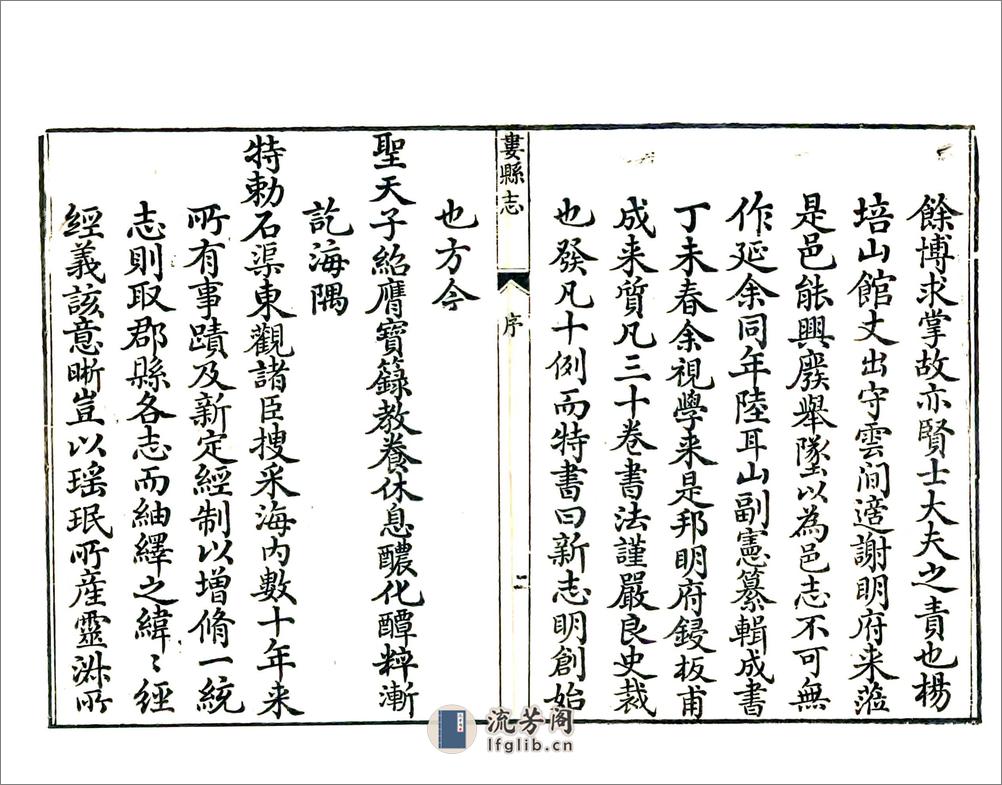 餘博求掌故亦賢士大夫之責也楊
培山館丈出守雲間適謝明府来蒞
是邑能興廢舉墜以為邑志不可無
作延余同年陸耳山副憲纂輯成書
丁未春余視學来是邦明府鋟板甫
成来質凡三十卷書法謹嚴良史裁
也發凡十例而特書曰新志明創始
婁縣志
序
二
也方今
聖天子紹膺寶籙教養休息醲化醰粹漸
訖海隅
特勅石渠東觀諸臣搜采海内數十年来
所有事蹟及新定經制以增脩一統
志則取郡縣各志而紬繹之緯〻經
經義該意晰豈以瑶珉所産靈淋所
流芳阁
lfglib.cn